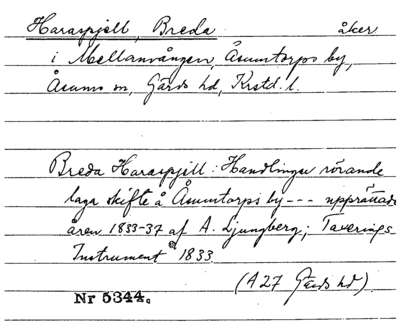 Haraspjell, Breda åker
i Mellanvången, Åsumtorps by,
Åsums sn, Gärds hd, Krstd. l.
Breda Haraspjill: Handlingar rörande
laga skifte å Åsumtorps by --- upprättade
åren 1833-37 af A. Ljungberg; Taverings
Instrument 1833
(A27 Gärds hd)
Nr 5344.